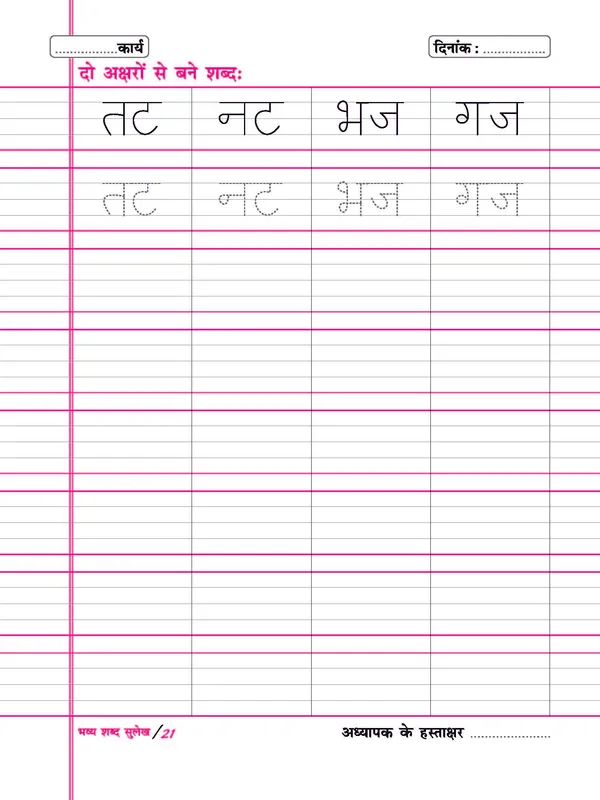 .................कार्य दिनांक : .................
दो अक्षरों से बने शब्द:
तट नट भज गज
तट नट भज गज
भव्य शब्द सुलेख/21 अध्यापक के हस्ताक्षर ......................